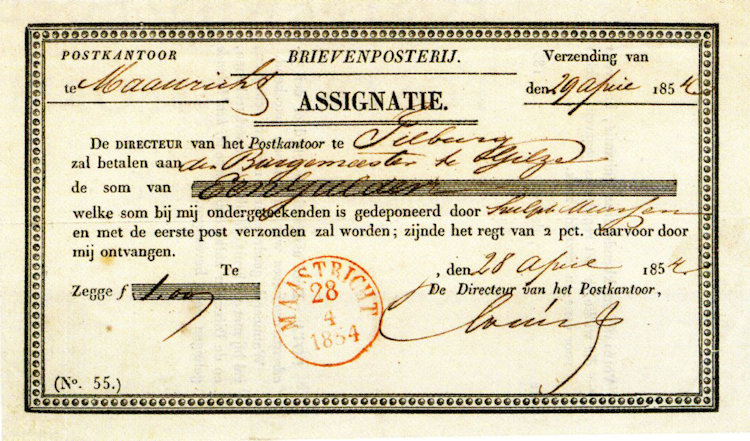 POSTKANTOOR
te Maastricht
BRIEVENPOSTERIJ.
ASSIGNATIE.
Verzending van
den 29 April 1854
De DIRECTEUR van het Postkantoor te Tilburg
zal betalen aan den Burgemeester te Gilze
de som van Een Gulden
welke som bij mij ondergeteekenden is gedeponeerd door
en met de eerste post verzonden zal worden; zijnde het regt van 2 pct. daarvoor door
mij ontvangen.
Te , den 28 April 1854
Zegge f 1.00
De Directeur van het Postkantoor,
MAASTRICHT
28
4
1854
(No. 55.)